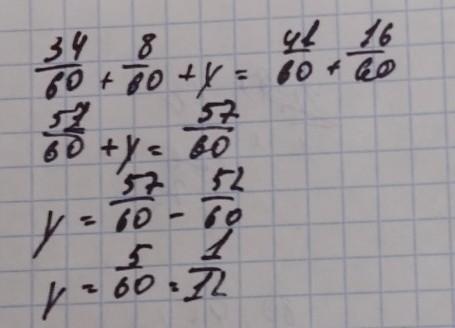 34/60 + 8/60 + y = 41/60 + 16/60
52/60 + y = 57/60
y = 57/60 - 52/60
y = 5/60 = 1/12